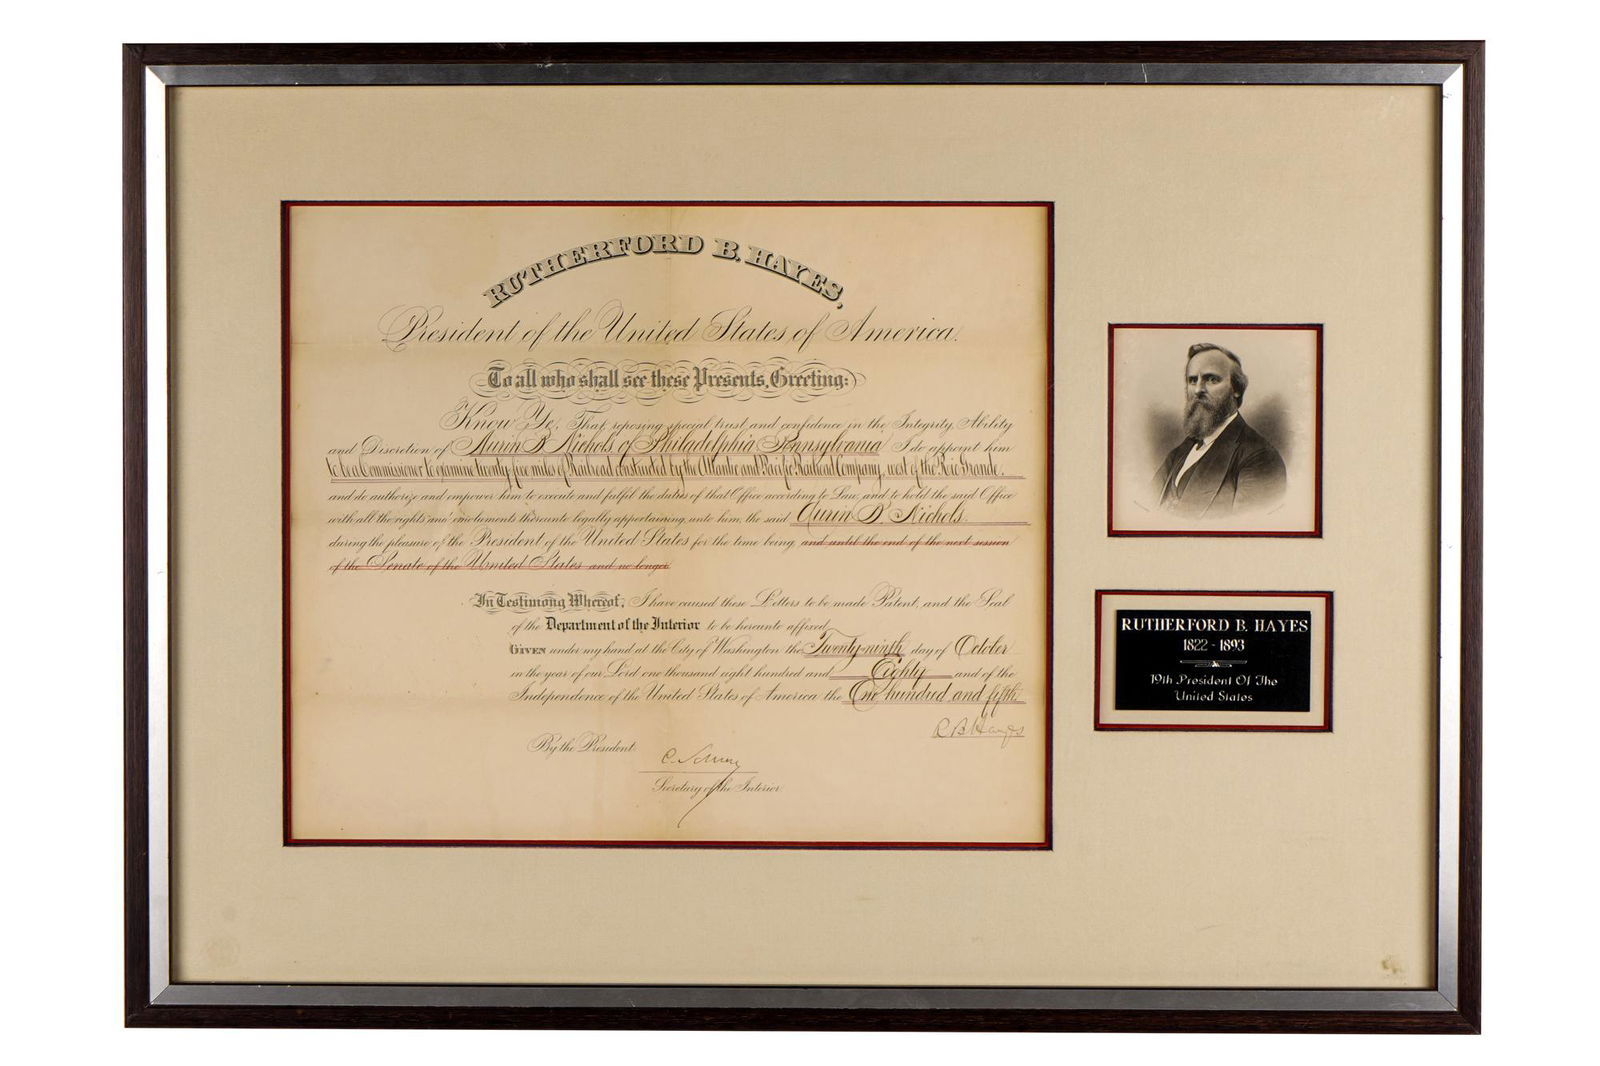 RUTHERFORD B. HAYES,
President of the United States of America.
To all who shall see these Presents, Greeting:
Know Ye, That, reposing special trust and confidence in the Integrity, Ability
and Discretion of Aurin B. Nichols of Philadelphia Pennsylvania I do appoint him
to be a Commissioner to examine twenty-five miles of Railroad constructed by the Atlantic and Pacific Railroad Company, west of the Rio Grande.
and do authorize and empower him to execute and fulfil the duties of that Office according to Law, and to hold the said Office
with all the rights and emoluments thereunto legally appertaining, unto him, the said Aurin B. Nichols.
during the pleasure of the President of the United States for the time being, and until the end of the next session
of the Senate of the United States and no longer
In Testimony Whereof, I have caused these Letters to be made Patent, and the Seal
of the Department of the Interior to be hereunto affixed.
GIVEN under my hand at the City of Washington the Twenty-ninth day of October
in the year of our Lord one thousand eight hundred and Eighty and of the
Independence of the United States of America the One hundred and fifth.
R B Hayes
By the President:
C. Schurz
Secretary of the Interior
RUTHERFORD B. HAYES
1822 - 1893
19th President Of The
United States